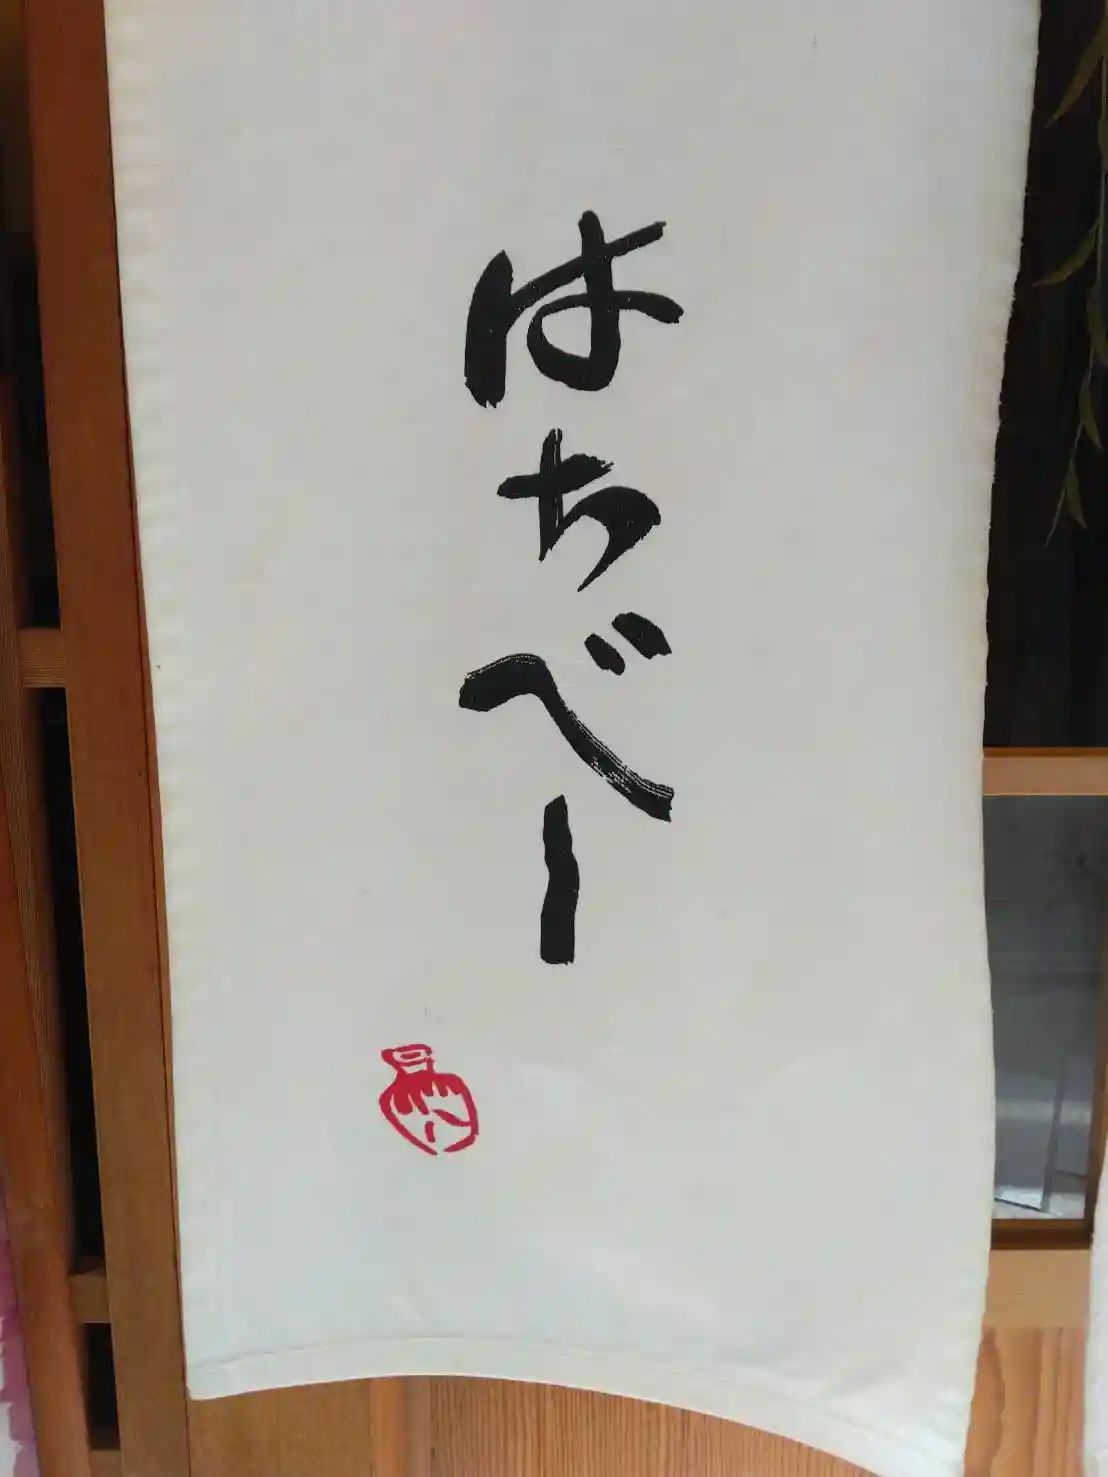 はちべー